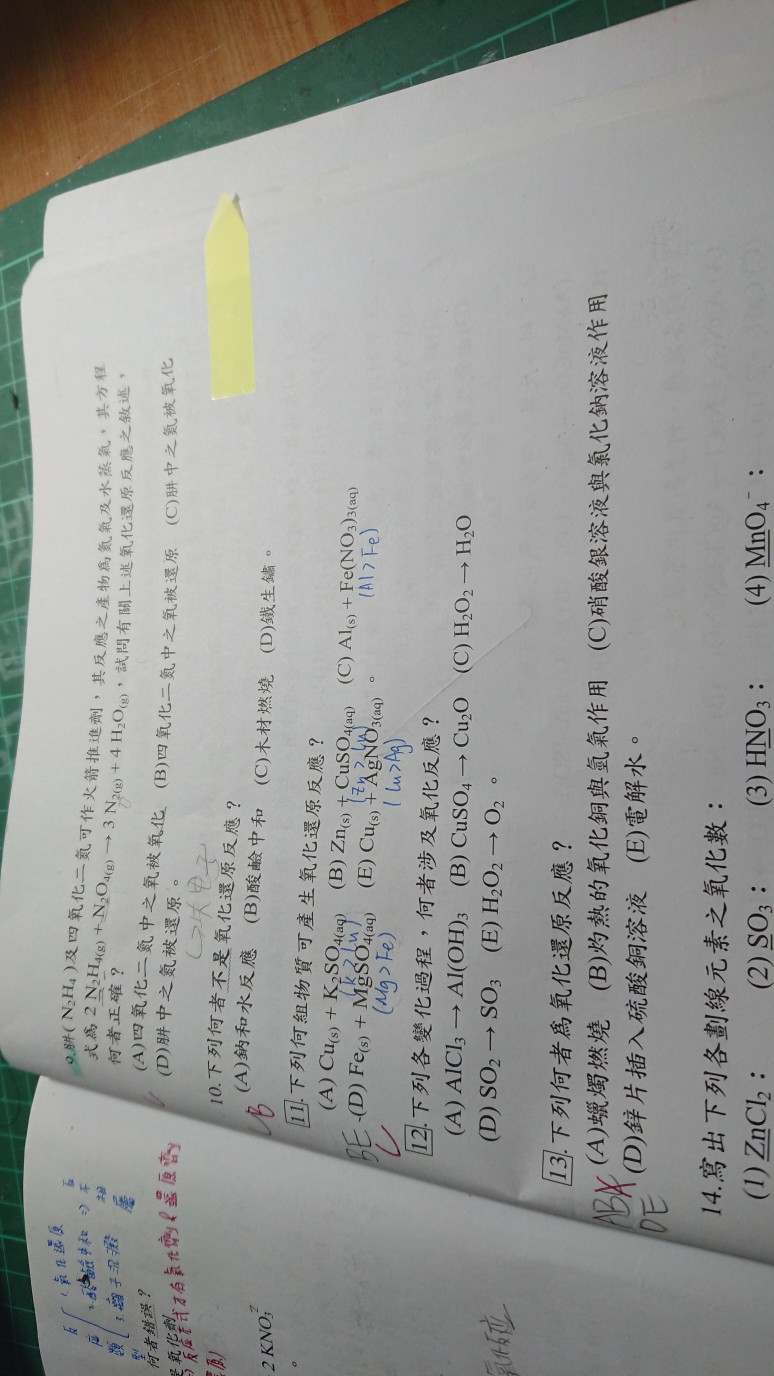 9.肼(N₂H₄)及四氧化二氮可作火箭推進劑，其反應之產物為氮氣及水蒸氣，其方程
式為 2 N₂H₄(g) + N₂O₄(g) → 3 N₂(g) + 4 H₂O(g)，試問有關上述氧化還原反應之敘述，
何者正確？
(A)四氧化二氮中之氧被氧化 (B)四氧化二氮中之氧被還原 (C)肼中之氮被氧化
(D)肼中之氮被還原。
10.下列何者不是氧化還原反應？
(A)鈉和水反應 (B)酸鹼中和 (C)木材燃燒 (D)鐵生鏽。
B
11.下列何組物質可產生氧化還原反應？
(A) Cu(s) + K₂SO₄(aq) (B) Zn(s) + CuSO₄(aq) (C) Al(s) + Fe(NO₃)₃(aq)
(K > Cu) (Zn > Cu) (Al > Fe)
(D) Fe(s) + MgSO₄(aq) (E) Cu(s) + AgNO₃(aq)。
(Mg > Fe) (Cu > Ag)
BE
C
12.下列各變化過程，何者涉及氧化反應？
(A) AlCl₃ → Al(OH)₃ (B) CuSO₄ → Cu₂O (C) H₂O₂ → H₂O
(D) SO₂ → SO₃ (E) H₂O₂ → O₂。
13.下列何者為氧化還原反應？
(A)蠟燭燃燒 (B)灼熱的氧化銅與氫氣作用 (C)硝酸銀溶液與氯化鈉溶液作用
(D)鋅片插入硫酸銅溶液 (E)電解水。
AB
DE
14.寫出下列各劃線元素之氧化數：
(1) ZnCl₂： (2) SO₃： (3) HNO₃： (4) MnO₄⁻：
何者錯誤？
是氧化劑
2 KNO₃